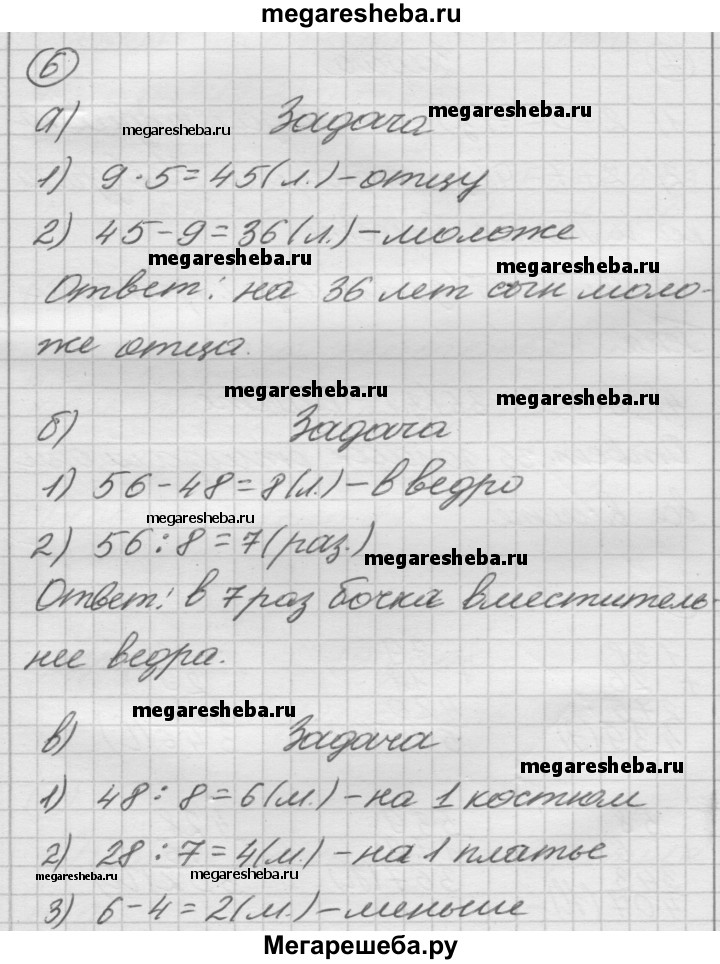 megaresheba.ru
6
а) megaresheba.ru Задача megaresheba.ru
1) 9 · 5 = 45 (л.) – отцу
2) 45 – 9 = 36 (л.) – моложе
megaresheba.ru megaresheba.ru
Ответ: на 36 лет сын моло-
же отца.
megaresheba.ru megaresheba.ru
б) Задача
1) 56 – 48 = 8 (л.) – в ведро
megaresheba.ru
2) 56 : 8 = 7 (раз.) megaresheba.ru
Ответ: в 7 раз бочка вместитель-
нее ведра.
megaresheba.ru
в) Задача
megaresheba.ru
1) 48 : 8 = 6 (м.) – на 1 костюм
2) 28 : 7 = 4 (м.) – на 1 платье
megaresheba.ru megaresheba.ru megaresheba.ru
3) 6 – 4 = 2 (м.) – меньше
Мегарешеба.ру